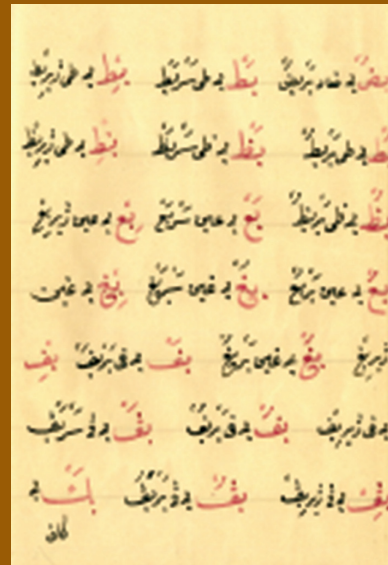 بضٌ به ضاد بربضٌ بطً به طی سربطً بطٍ به طی زیربطٍ
طٌ به طی بربطٌ بظً به ظی سربظً بظٍ به ظی زیربظٍ
بظٌ به ظی بربظٌ بعً به عین سربعً بعٍ به عین زیربعٍ
بعٌ به عین بربعٌ بغً به غین سربغً بغٍ به غین
زیربغٍ بغٌ به غین بربغٌ بفً به فی سربفً بفٍ
به فی زیربفٍ بفٌ به فی بربفٌ بقً به سربقً
بقٍ به زیربقٍ بقٌ به بربقٌ بكً به
كاف